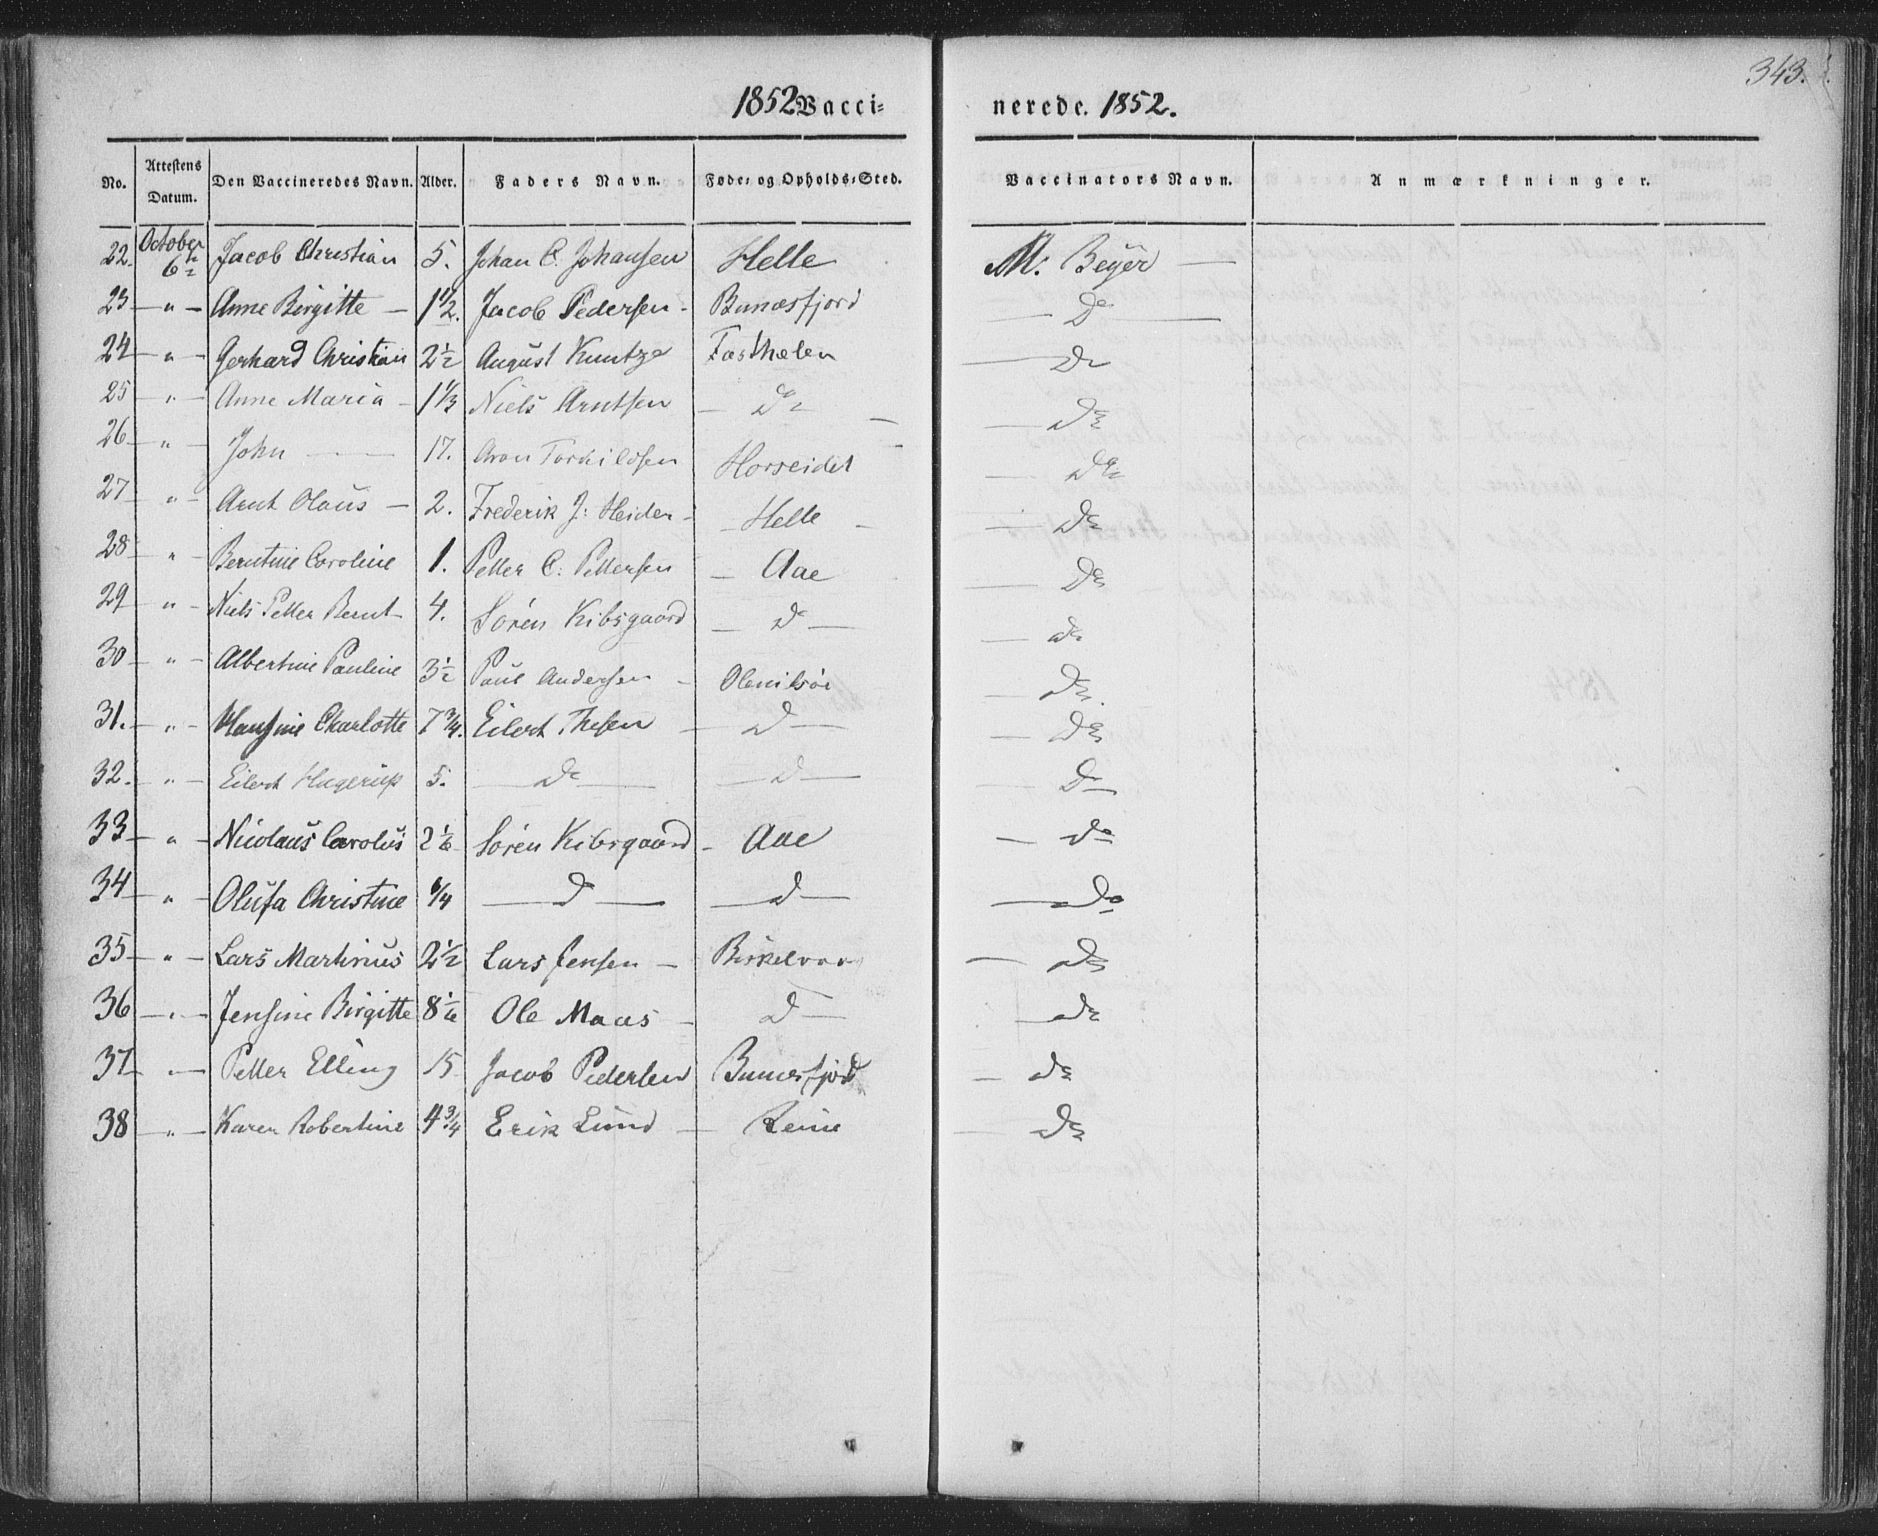 343.
1852 Vacci= nerede. 1852.
No. Attestens Datum. Den Vaccineredes Navn. Alder. Faders Navn. Føde= og Opholds=Sted. Vaccinators Navn. Anmærkninger.
22. October 6te Jacob Christian 5. Johan C. Johansen Helle M. Beyer —
23 — " — Anne Birgitte — 1 1/2. Jacob Pedersen - Bunæsfjord — Do —
24 — " — Gerhard Christian 2 1/2 August Kuntze — Do
25 — " — Anne Maria — 1 1/3 Niels Arntsen — Do — — Do
26 — " John — 17. Aron Torkildsen Horseidet — Do
27 — " — Arnt Olaus — 2. Frederik J: Heider - — Helle — — Do
28 — " Berntine Caroline 1. Petter C. Pettersen — Aae — Do
29 — " — Niels Petter Bernt 4. Sören Kibsgaard — Do — — do
30 — " — Albertine Pauline 3 1/2 Paul Andersen — Olenilsöe — Do.
31. — " — Hansine Charlotte 7 3/4. Eilert Thesen — D — — Do
32. — " — Eilert Hagerup 5. — Do — — D — — Do
33 — " — Nicolaus Carolus 2 1/6 Sören Kibsgaard - Aae — do
34 — " Olufa Christine 6/4 — D — — D — — Do
35 — " — Lars Martinus 2 1/2 Lars Jensen — — Do
36 — " — Jensine Birgitte 8 1/6 Ole Maas — D — — do
37 — " — Petter Elling 15 Jacob Pedersen Bunesfjord — do
38 — " — Karen Robertine 4 3/4 Erik Lund — Reine — Do